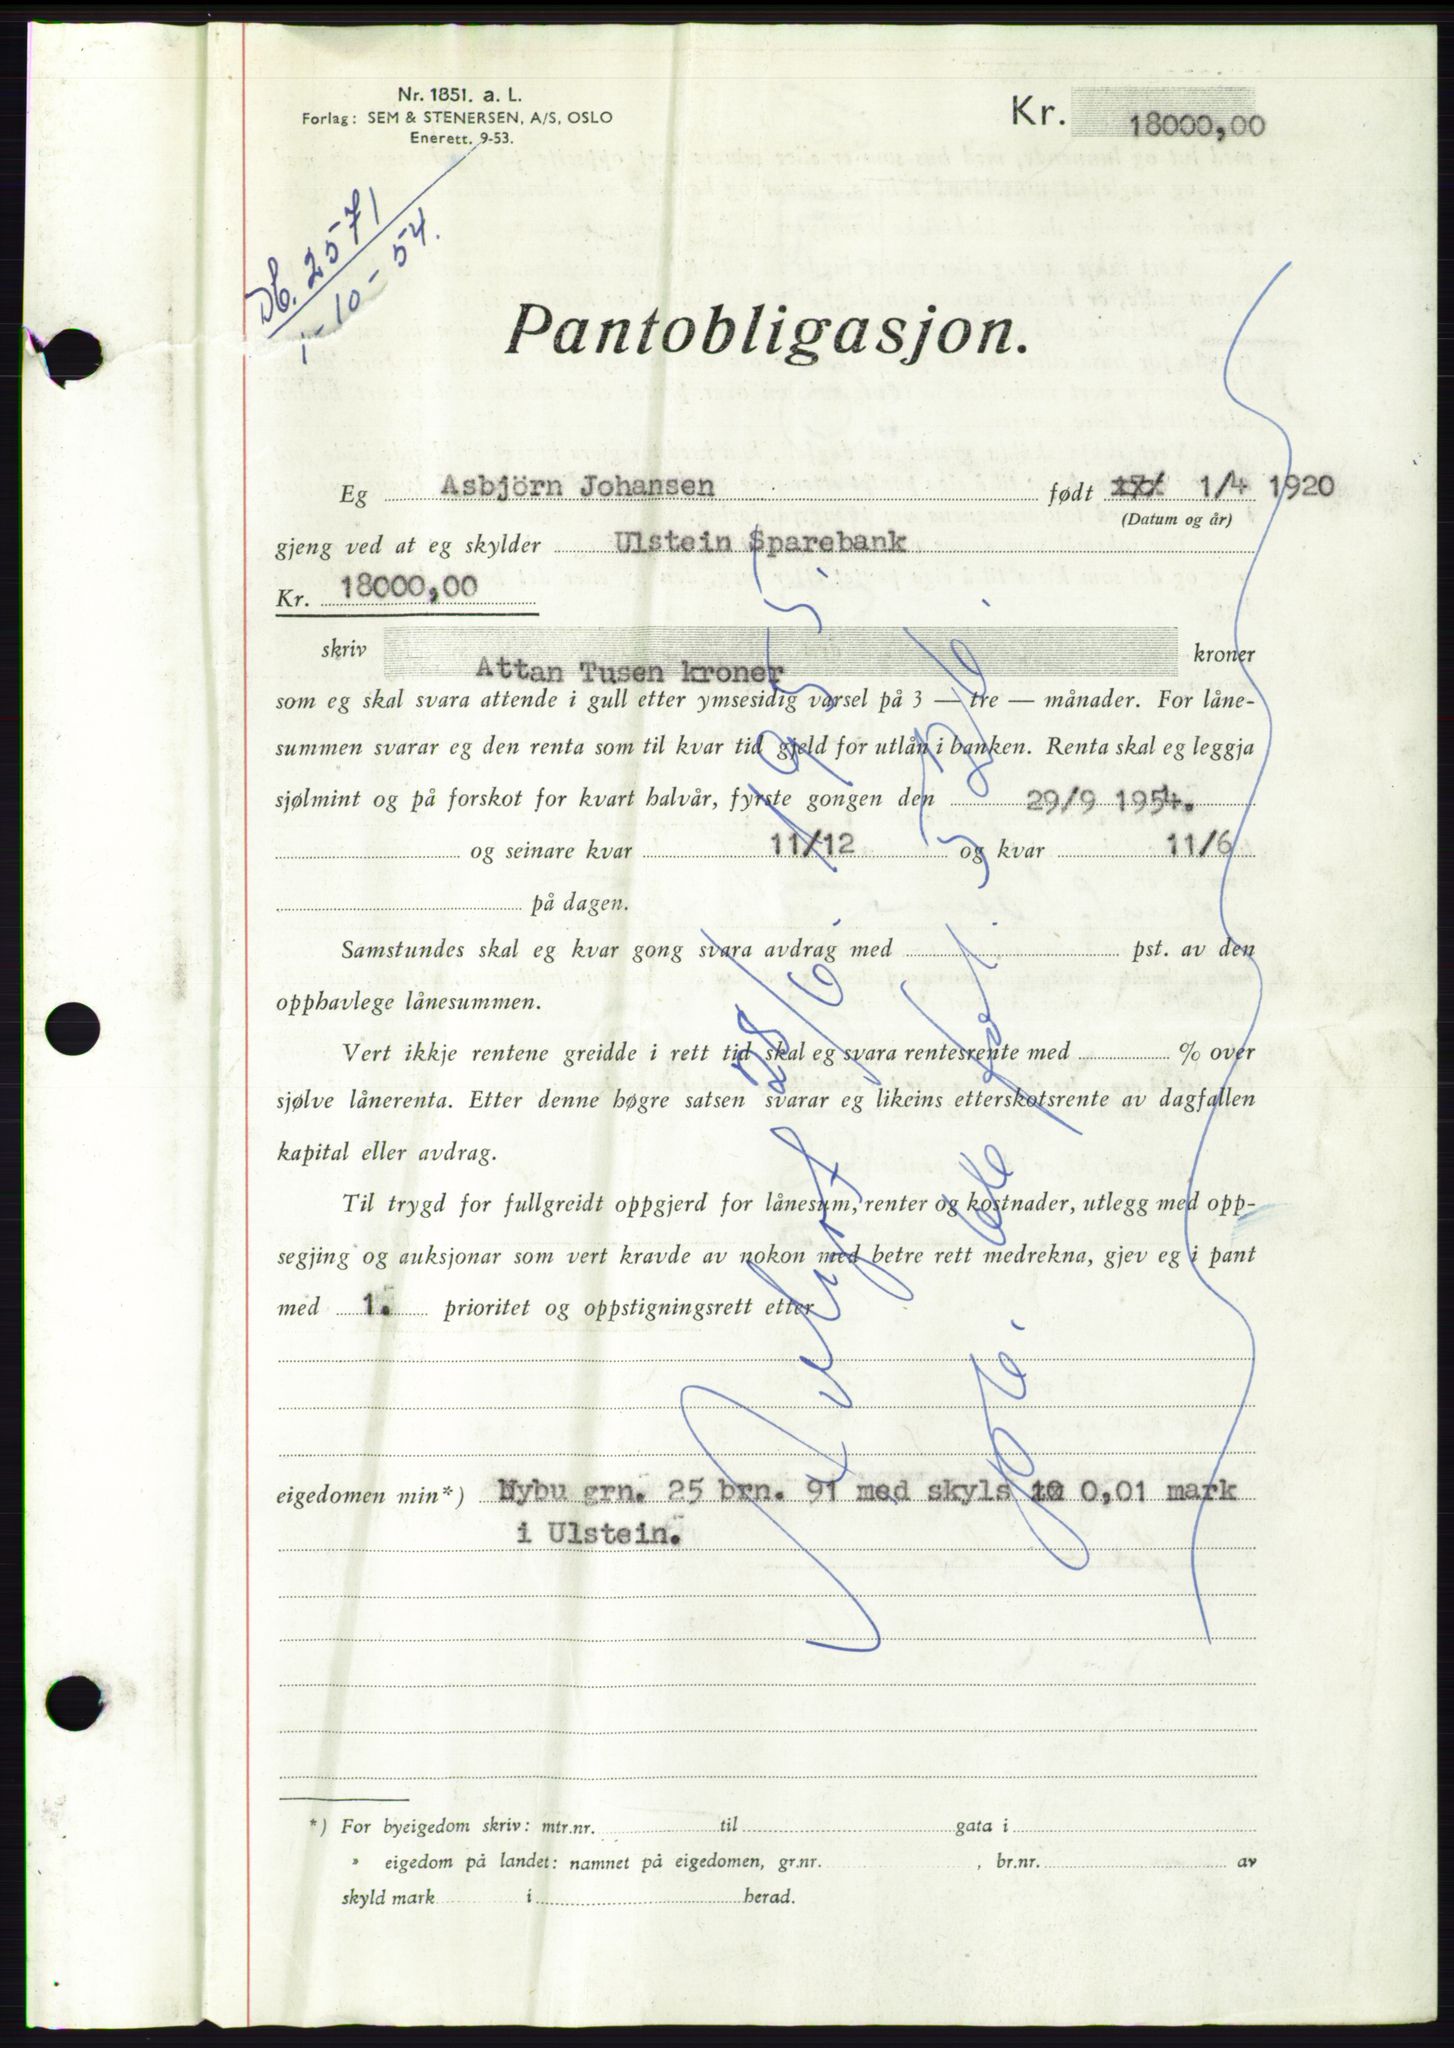 Nr. 1851. a. L.
Forlag: SEM & STENERSEN, A/S, OSLO
Enerett. 9-53.
Kr. 18000,00
Db. 2571
1-10-54.
Pantobligasjon.
Eg Asbjörn Johansen født 1/4 1920
(Datum og år)
gjeng ved at eg skylder Ulstein Sparebank
Kr. 18000,00
skriv Attan Tusen kroner kroner
som eg skal svara attende i gull etter ymsesidig varsel på 3 — tre — månader. For låne-
summen svarar eg den renta som til kvar tid gjeld for utlån i banken. Renta skal eg leggja
sjølmint og på forskot for kvart halvår, fyrste gongen den 29/9 1954.
og seinare kvar 11/12 og kvar 11/6
på dagen.
Samstundes skal eg kvar gong svara avdrag med pst. av den
opphavlege lånesummen.
Vert ikkje rentene greidde i rett tid skal eg svara rentesrente med % over
sjølve lånerenta. Etter denne høgre satsen svarar eg likeins etterskotsrente av dagfallen
kapital eller avdrag.
Til trygd for fullgreidt oppgjerd for lånesum, renter og kostnader, utlegg med opp-
segjing og auksjonar som vert kravde av nokon med betre rett medrekna, gjev eg i pant
med 1. prioritet og oppstigningsrett etter
eigedomen min*) Nybu grn. 25 brn. 91 med skyls 0,01 mark
i Ulstein.
*) For byeigedom skriv: mtr.nr. til gata i
» eigedom på landet: namnet på eigedomen, gr.nr. , br.nr. av
skyld mark i herad.